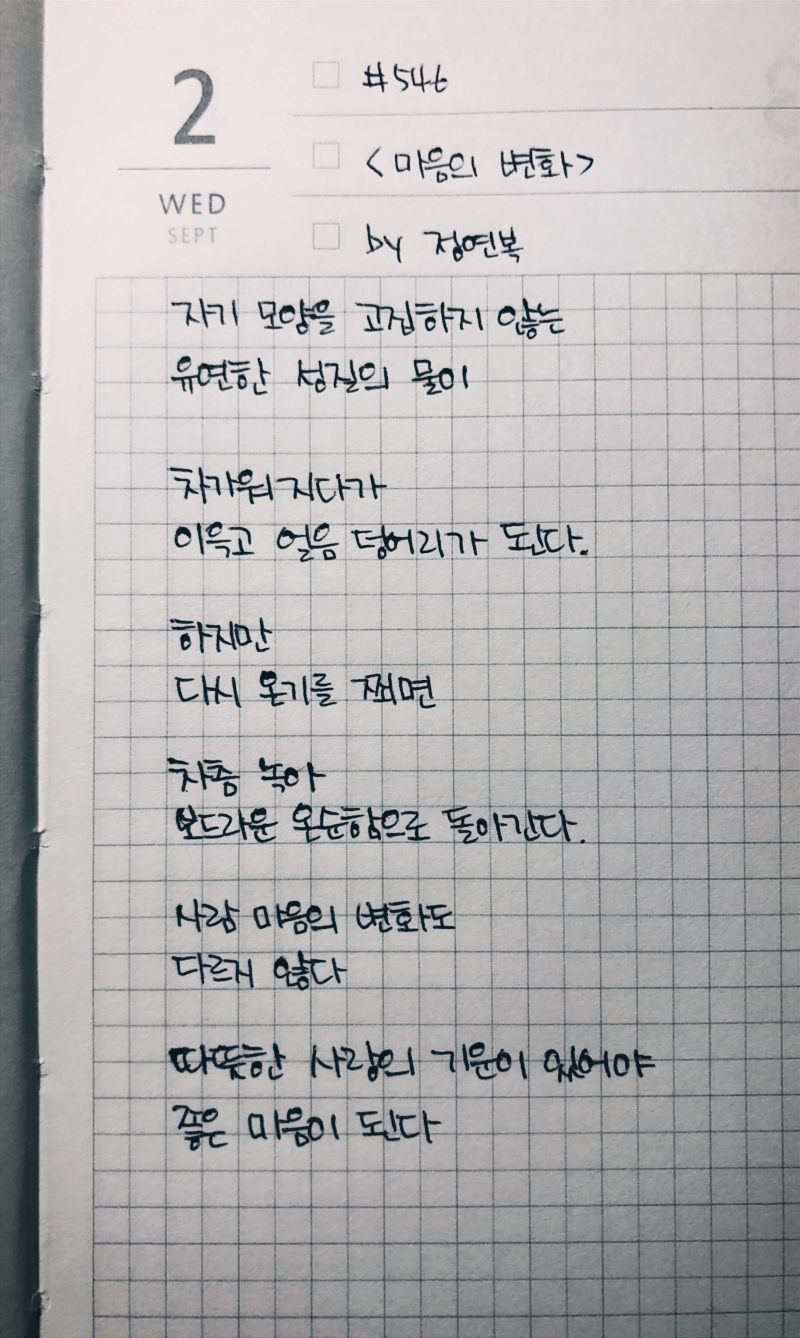 2
WED
SEPT
#546
<마음의 변화>
by 정연복
자기 모양을 고집하지 않는
유연한 성질의 물이
차가워지다가
이윽고 얼음 덩어리가 된다.
하지만
다시 온기를 쬐면
차츰 녹아
보드라운 온순함으로 돌아간다.
사람 마음의 변화도
다르지 않다
따뜻한 사랑의 기운이 있어야
좋은 마음이 된다